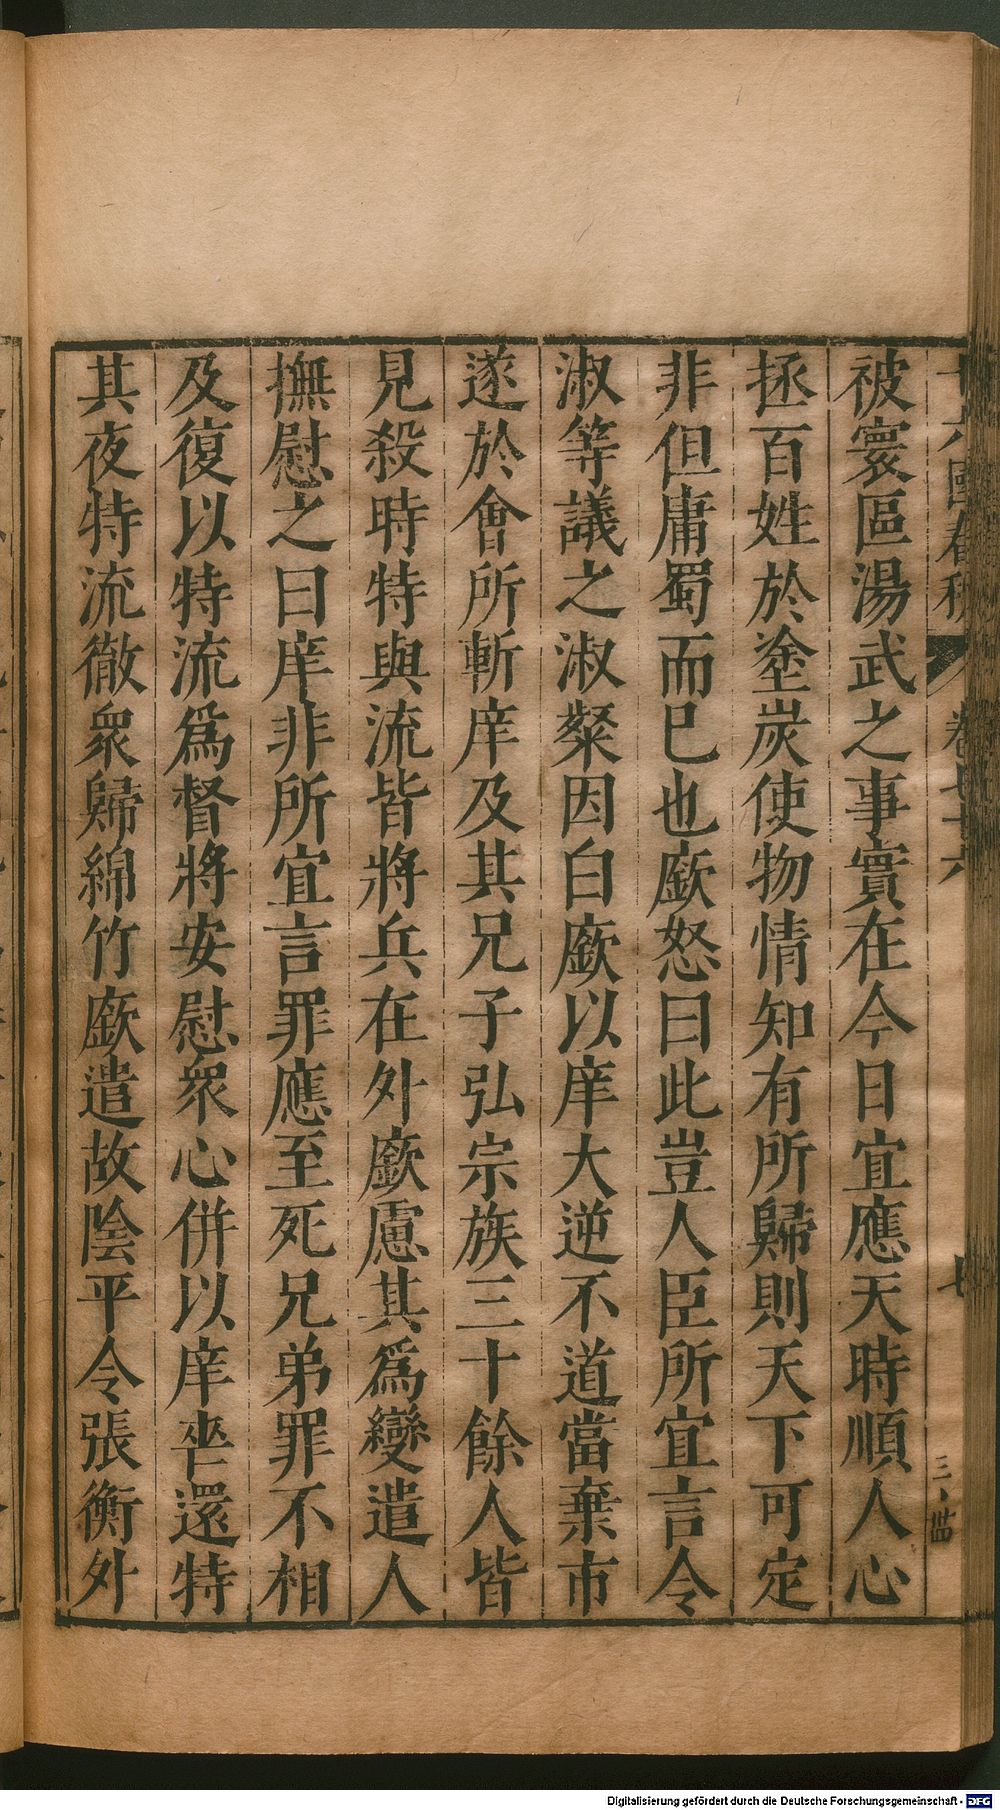 十六國春秋 卷七十六 七
被寰區湯武之事實在今日宜應天時順人心
拯百姓於塗炭使物情知有所歸則天下可定
非但庸蜀而已也廞怒曰此豈人臣所宜言令
淑等議之淑粲因白廞以庠大逆不道當棄市
遂於會所斬庠及其兄子弘宗族三十餘人皆
見殺時特與流皆將兵在外廞慮其為變遣人
撫慰之曰庠非所宜言罪應至死兄弟罪不相
及復以特流爲督將安慰衆心併以庠𠷔還特
其夜特流徹衆歸綿竹廞遣故陰平令張衡外
Digitalisierung gefördert durch die Deutsche Forschungsgemeinschaft - DFG